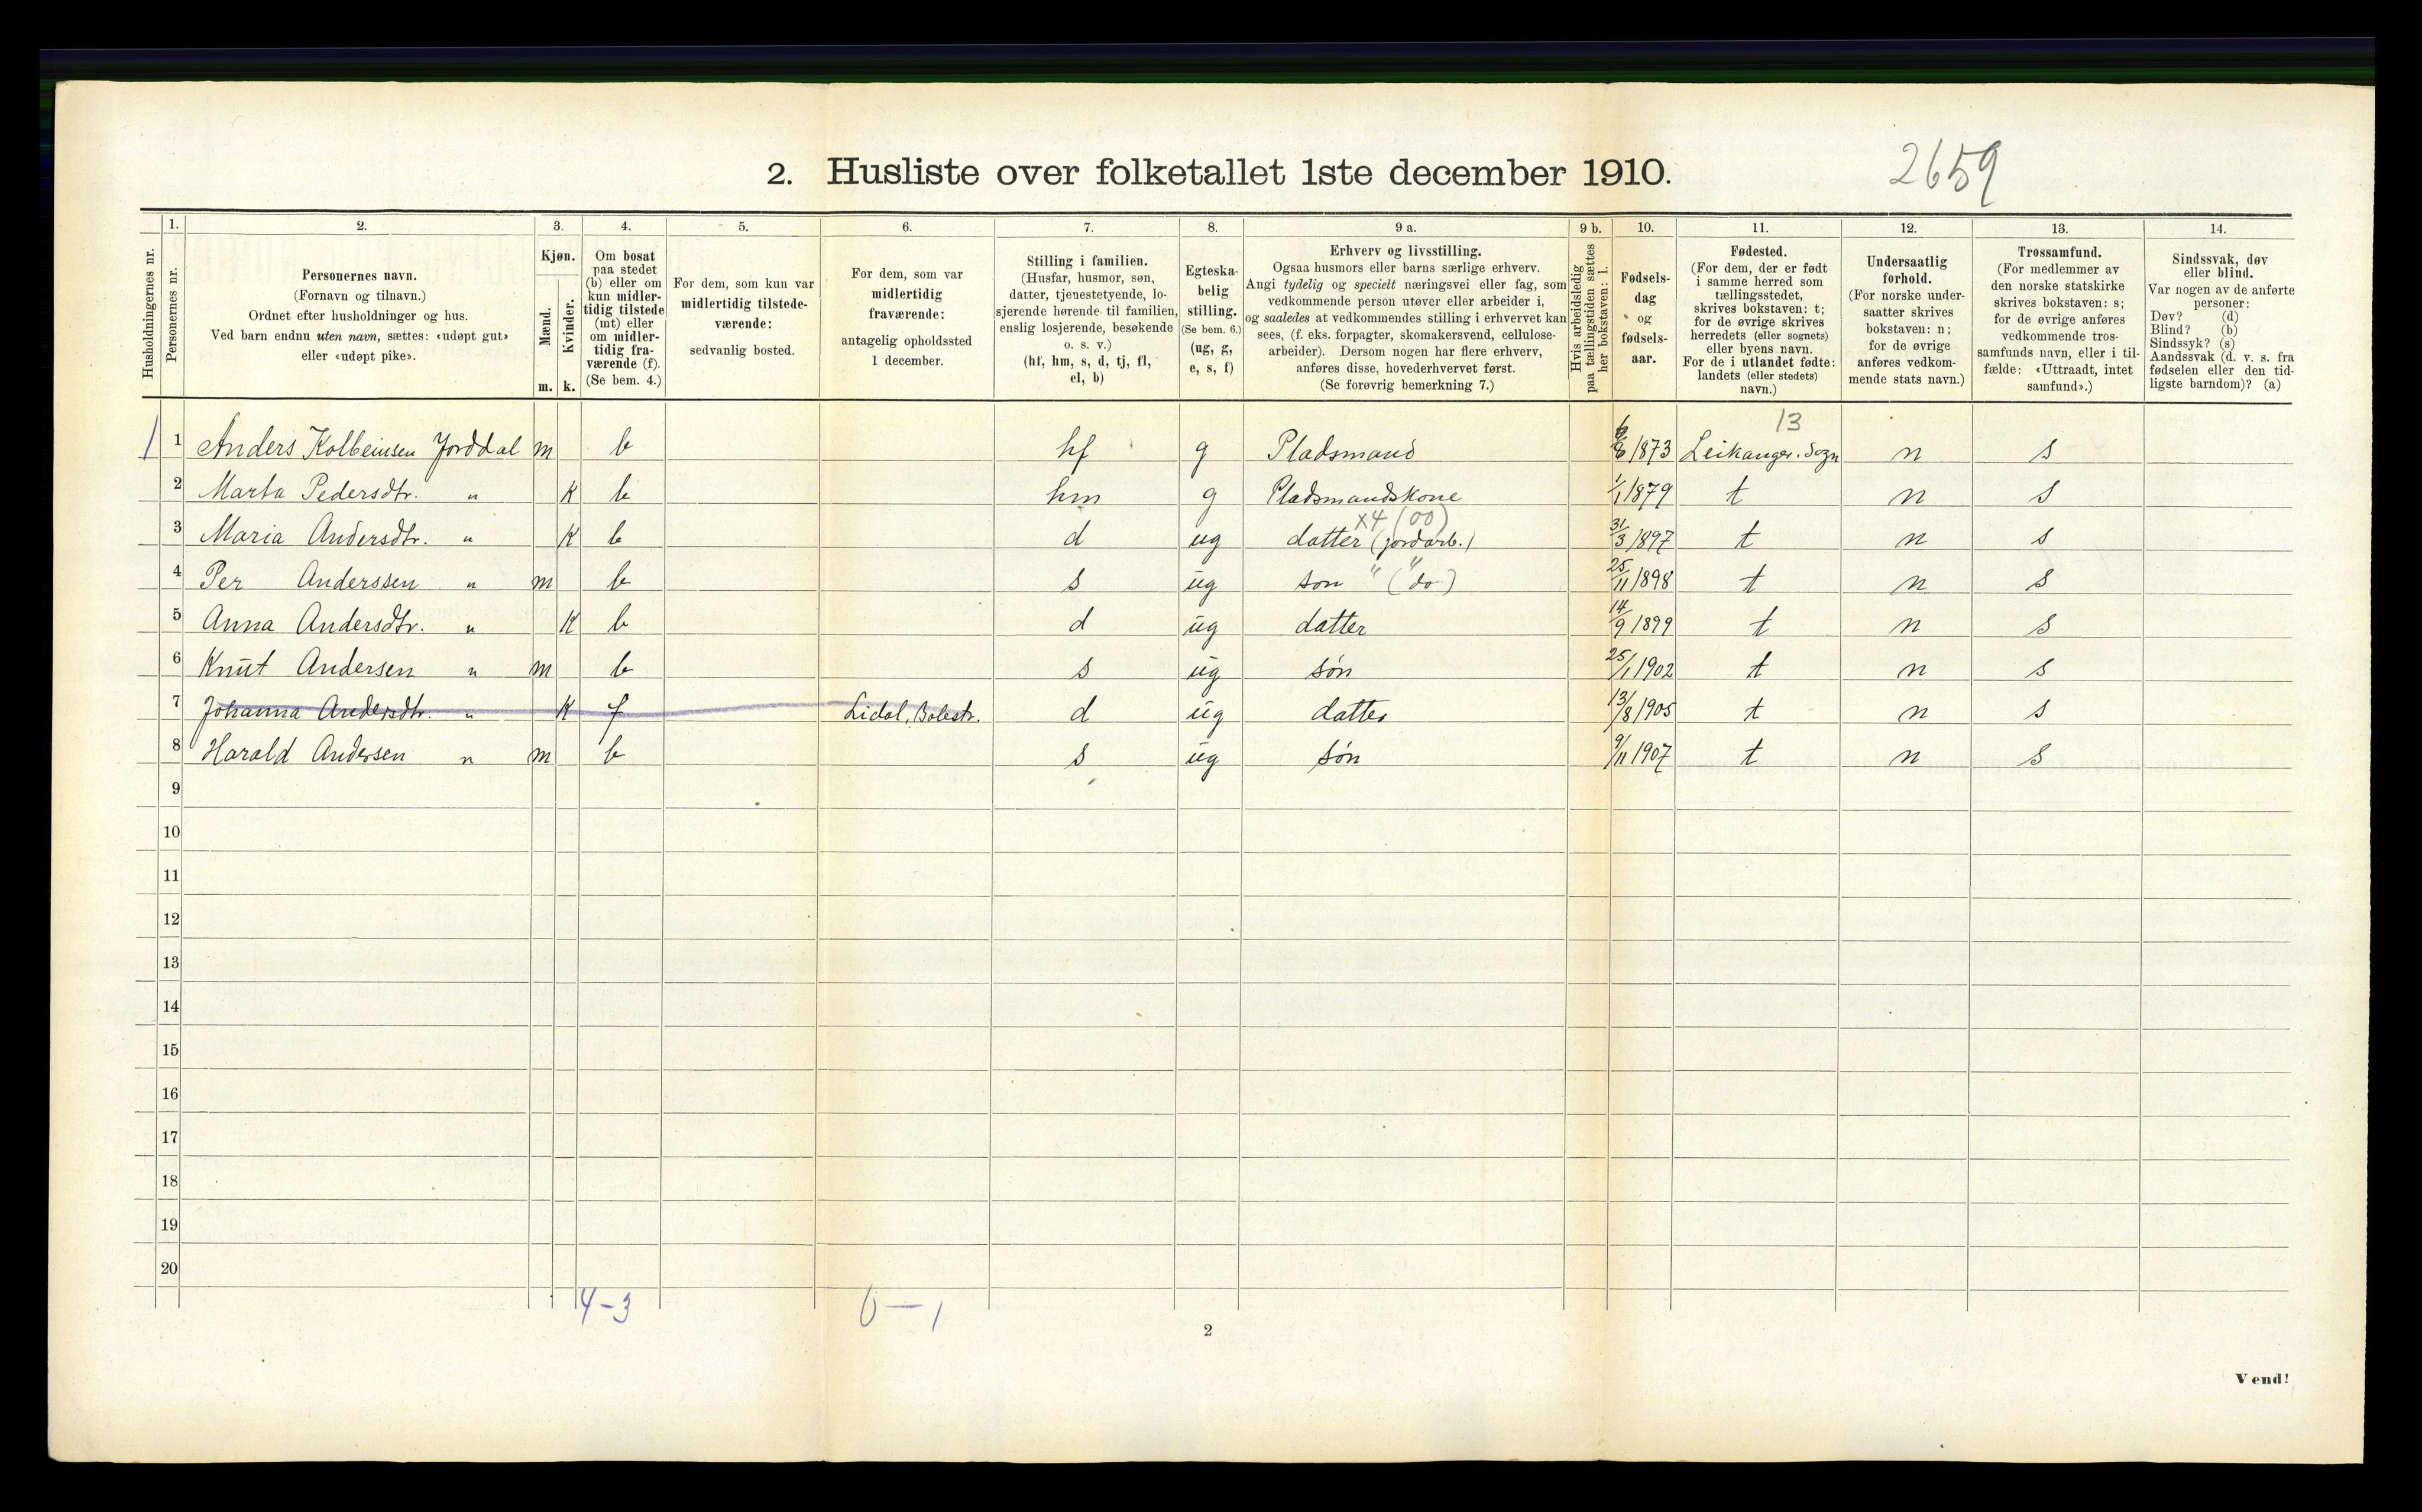 2. Husliste over folketallet 1ste december 1910.
2659
1. 2. 3. 4. 5. 6. 7. 8. 9 a. 9 b. 10. 11. 12. 13. 14.
Husholdningernes nr.
Personernes nr.
Personernes navn.
(Fornavn og tilnavn.)
Ordnet efter husholdninger og hus.
Ved barn endnu uten navn, sættes: «udøpt gut»
eller «udøpt pike».
Kjøn.
Mænd.
Kvinder.
m. k.
Om bosat
paa stedet
(b) eller om
kun midler-
tidig tilstede
(mt) eller
om midler-
tidig fra-
værende (f).
(Se bem. 4.)
For dem, som kun var
midlertidig tilstede-
værende:
sedvanlig bosted.
For dem, som var
midlertidig
fraværende:
antagelig opholdssted
1 december.
Stilling i familien.
(Husfar, husmor, søn,
datter, tjenestetyende, lo-
sjerende hørende til familien,
enslig losjerende, besøkende
o. s. v.)
(hf, hm, s, d, tj, fl,
el, b)
Egteska-
belig
stilling.
(Se bem. 6.)
(ug, g,
e, s, f)
Erhverv og livsstilling.
Ogsaa husmors eller barns særlige erhverv.
Angi tydelig og specielt næringsvei eller fag, som
vedkommende person utøver eller arbeider i,
og saaledes at vedkommendes stilling i erhvervet kan
sees, (f. eks. forpagter, skomakersvend, cellulose-
arbeider). Dersom nogen har flere erhverv,
anføres disse, hovederhvervet først.
(Se forøvrig bemerkning 7.)
Hvis arbeidsledig
paa tællingstiden sættes
her bokstaven: l.
Fødsels-
dag
og
fødsels-
aar.
Fødested.
(For dem, der er født
i samme herred som
tællingsstedet,
skrives bokstaven: t;
for de øvrige skrives
herredets (eller sognets)
eller byens navn.
For de i utlandet fødte:
landets (eller stedets)
navn.)
Undersaatlig
forhold.
(For norske under-
saatter skrives
bokstaven: n;
for de øvrige
anføres vedkom-
mende stats navn.)
Trossamfund.
(For medlemmer av
den norske statskirke
skrives bokstaven: s;
for de øvrige anføres
vedkommende tros-
samfunds navn, eller i til-
fælde: «Uttraadt, intet
samfund».)
Sindssvak, døv
eller blind.
Var nogen av de anførte
personer:
Døv? (d)
Blind? (b)
Sindssyk? (s)
Aandssvak (d. v. s. fra
fødselen eller den tid-
ligste barndom)? (a)
13
1 1 Anders Kolbeinsen Jorddal m b hf g Pladsmand 1873 Leikanger. Sogn n s
2 Marta Pedersdtr. " K b hm g Pladsmandskone 1/1 1879 t n s
x4 (00)
3 Maria Andersdtr. " K b d ug datter (jordarb.) 31/3 1897 t n s
4 Per Anderssen " m b s ug son " ("do) 25/11 1898 t n s
5 Anna Andersdtr. " K b d ug datter 14/9 1899 t n s
6 Knut Andersen " m b s ug søn 25/1 1902 t n s
7 Johanna Andersdtr. " K f Lidal, Balestr. d ug datter 13/8 1905 t n s
8 Harald Andersen " m b s ug søn 9/11 1907 t n s
9
10
11
12
13
14
15
16
17
18
19
20
4-3 0-1
2
Vend!